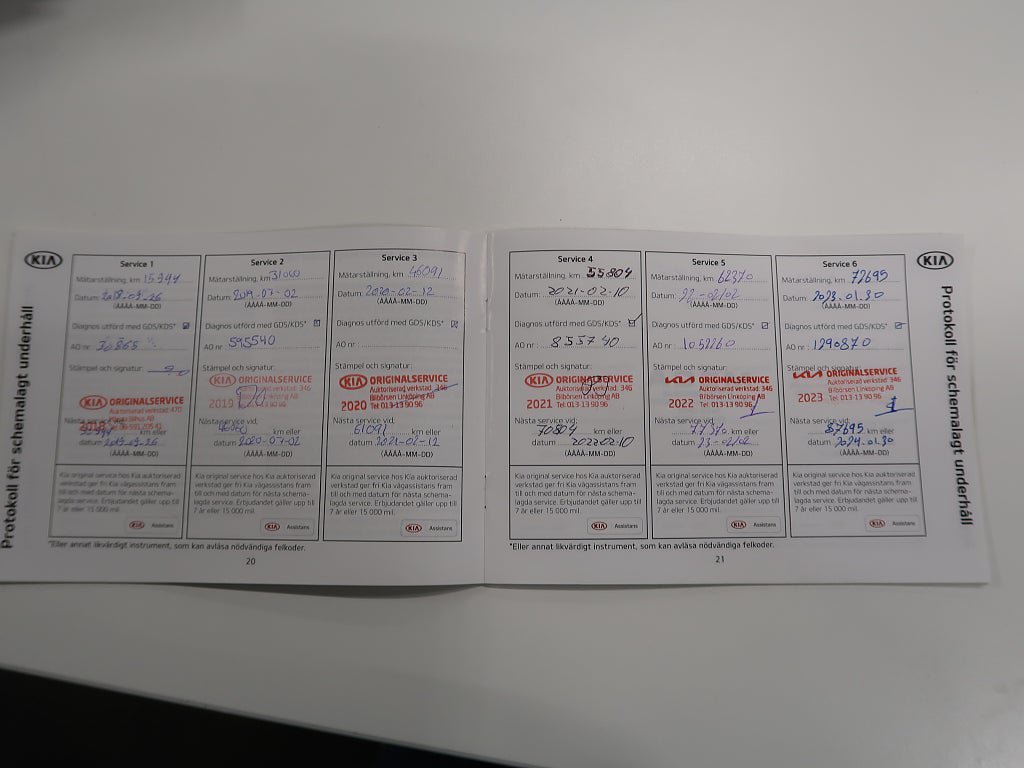 KIA
Protokoll för schemalagt underhåll
Service 1
Mätarställning, km 15394
Datum:
(ÅÅÅÅ-MM-DD)
Diagnos utförd med GDS/KDS*
AO nr: 30865
Stämpel och signatur:
KIA ORIGINALSERVICE
Auktoriserad verkstad 470
2018
Nästa service vid:
km eller
datum 2019-09-26
(ÅÅÅÅ-MM-DD)
Kia original service hos Kia auktoriserad
verkstad ger fri Kia vägassistans fram
till och med datum för nästa schema-
lagda service. Erbjudandet gäller upp till
7 år eller 15 000 mil.
KIA Assistans
Service 2
Mätarställning, km
Datum 2019-07-02
(ÅÅÅÅ-MM-DD)
Diagnos utförd med GDS/KDS*
AO nr: 595540
Stämpel och signatur:
KIA ORIGINALSERVICE
Auktoriserad verkstad 346
2019 Bilbörsen Linköping AB
Tel: 013-13 90 96
Nästa service vid:
km eller
datum 2020-07-02
(ÅÅÅÅ-MM-DD)
Kia original service hos Kia auktoriserad
verkstad ger fri Kia vägassistans fram
till och med datum för nästa schema-
lagda service. Erbjudandet gäller upp till
7 år eller 15 000 mil.
KIA Assistans
Service 3
Mätarställning, km 46091
Datum: 2020-02-12
(ÅÅÅÅ-MM-DD)
Diagnos utförd med GDS/KDS*
AO nr:
Stämpel och signatur:
KIA ORIGINALSERVICE
Auktoriserad verkstad 346
Bilbörsen Linköping AB
2020 Tel: 013-13 90 96
Nästa service vid:
61091 km eller
datum 2021-02-12
(ÅÅÅÅ-MM-DD)
Kia original service hos Kia auktoriserad
verkstad ger fri Kia vägassistans fram
till och med datum för nästa schema-
lagda service. Erbjudandet gäller upp till
7 år eller 15 000 mil.
KIA Assistans
*Eller annat likvärdigt instrument, som kan avläsa nödvändiga felkoder.
20
Service 4
Mätarställning, km 55804
Datum: 2021-02-10
(ÅÅÅÅ-MM-DD)
Diagnos utförd med GDS/KDS*
AO nr: 855740
Stämpel och signatur:
KIA ORIGINALSERVICE
Auktoriserad verkstad 346
Bilbörsen Linköping AB
2021 Tel: 013-13 90 96
Nästa service vid:
70804 km eller
datum 20220210
(ÅÅÅÅ-MM-DD)
Kia original service hos Kia auktoriserad
verkstad ger fri Kia vägassistans fram
till och med datum för nästa schema-
lagda service. Erbjudandet gäller upp till
7 år eller 15 000 mil.
KIA Assistans
Service 5
Mätarställning, km 62370
Datum: 22-02/02
(ÅÅÅÅ-MM-DD)
Diagnos utförd med GDS/KDS*
AO nr: 1052260
Stämpel och signatur:
KIA ORIGINALSERVICE
Auktoriserad verkstad 346
Bilbörsen Linköping AB
2022 Tel 013-13 90 96
Nästa service vid:
77370 km eller
datum 23-02/02
(ÅÅÅÅ-MM-DD)
Kia original service hos Kia auktoriserad
verkstad ger fri Kia vägassistans fram
till och med datum för nästa schema-
lagda service. Erbjudandet gäller upp till
7 år eller 15 000 mil.
KIA Assistans
Service 6
Mätarställning, km 72695
Datum: 2023.01.30
(ÅÅÅÅ-MM-DD)
Diagnos utförd med GDS/KDS*
AO nr: 1290870
Stämpel och signatur:
KIA ORIGINALSERVICE
Auktoriserad verkstad 346
Bilbörsen Linköping AB
2023 Tel 013-13 90 96
Nästa service vid:
87695 km eller
datum 2024.01.30
(ÅÅÅÅ-MM-DD)
Kia original service hos Kia auktoriserad
verkstad ger fri Kia vägassistans fram
till och med datum för nästa schema-
lagda service. Erbjudandet gäller upp till
7 år eller 15 000 mil.
KIA Assistans
*Eller annat likvärdigt instrument, som kan avläsa nödvändiga felkoder.
21
KIA
Protokoll för schemalagt underhåll